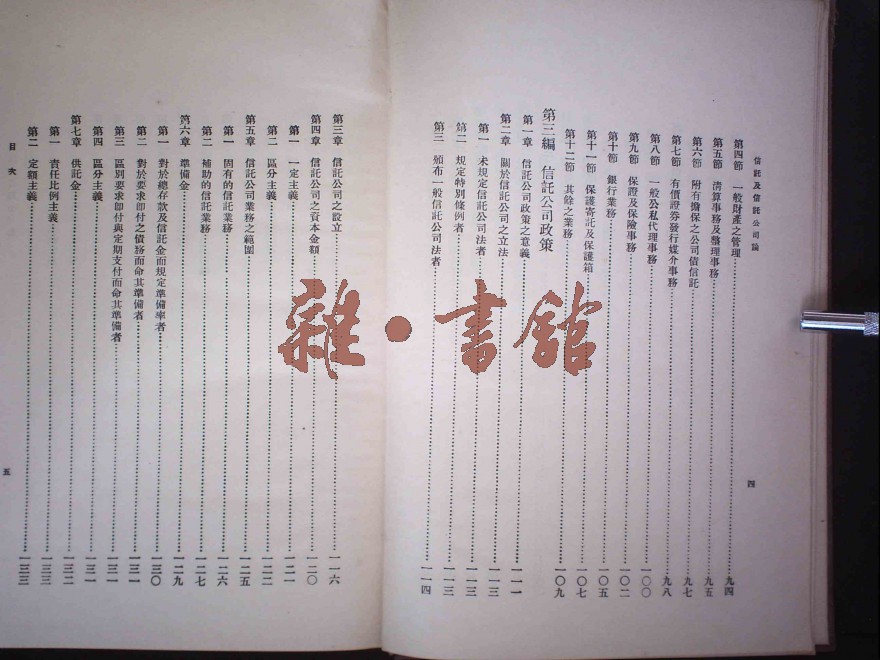 信託及信託公司論
第四節 一般財產之管理……九四
第五節 清算事務及整理事務……九五
第六節 附有擔保之公司債信託……九七
第七節 有價證券發行媒介事務……九八
第八節 一般公私代理事務……一〇〇
第九節 保證及保險事務……一〇二
第十節 銀行業務……一〇五
第十一節 保護寄託及保護箱……一〇七
第十二節 其餘之業務……一〇九
第三編 信託公司政策
第一章 信託公司政策之意義……一一一
第二章 關於信託公司之立法……一一三
第一 未規定信託公司法者……一一三
第二 規定特別條例者……一一三
第三 頒布一般信託公司法者……一一四
四
第三章 信託公司之設立……一一六
第四章 信託公司之資本金額……一二〇
第一 一定主義……一二一
第二 區分主義……一二二
第五章 信託公司業務之範圍……一二五
第一 固有的信託業務……一二六
第二 補助的信託業務……一二七
第六章 準備金……一二九
第一 對於總存款及信託金而規定準備率者……一三〇
第二 對於要求即付之債務而命其準備者……一三一
第三 區別要求即付與定期支付而命其準備者……一三一
第四 區分主義……一三一
第七章 供託金……一三二
第一 責任比例主義……一三三
第二 定額主義……一三三
目次
五
雜·書館